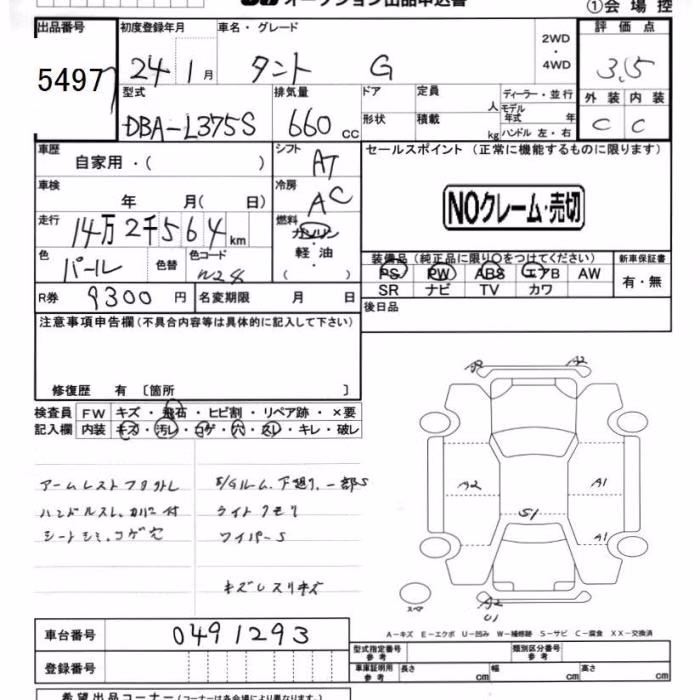 オークション出品申込書
①会場控
出品番号 初度登録年月 車名・グレード 評価点
5497 24 1月 タント G 2WD・4WD 3.5
型式 排気量 ドア 定員 人 ディーラー・並行 外装 内装
DBA-L375S 660cc 形状 積載 kg モデル年式 年 ハンドル 左・右 C C
車歴 自家用・( ) シフト AT セールスポイント (正常に機能するものに限ります)
車検 年 月( 日) 冷房 AC NOクレーム・売切
走行 14万2千564km 燃料 ガソリン 軽油 ( )
色 パール 色替 色コード W24 装備品(純正品に限り○をつけてください) 新車保証書
PS PW ABS エアB AW 有・無
R券 9300円 名変期限 月 日 SR ナビ TV カワ
注意事項申告欄(不具合内容等は具体的に記入して下さい) 後日品
修復歴 有 〔箇所 〕
検査員 FW キズ・飛石・ヒビ割・リペア跡・×要
記入欄 内装 キズ・汚レ・コゲ・穴・スレ・キレ・破レ
A2 A2
A2 A1
S1
A1
アームレスト E/Gルーム、下廻り、一部S
ハンドルスレ、カバー付 ライトクモリ
シートシミ、コゲ穴 ワイパーS
キズレスリキズ
スペア A2
U1
A－キズ E－エクボ U－凹み W－補修跡 S－サビ C－腐食 XX－交換済
車台番号 0491293
型式指定番号 参考 類別区分番号 参考
登録番号 車庫証明用 参考 長さ cm 幅 cm 高さ cm
希望出品コーナー(コーナーは各会場により異なります。)